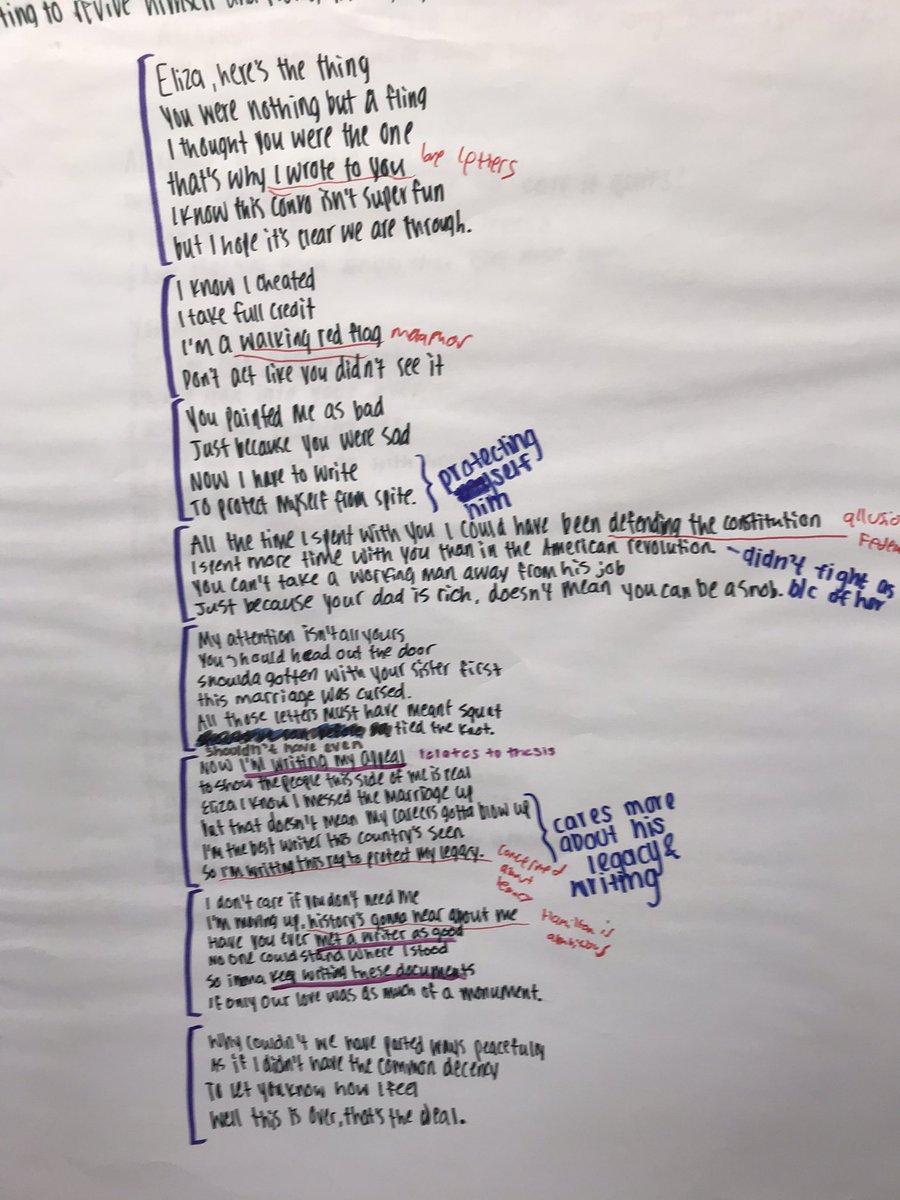 himself
Eliza, here's the thing
You were nothing but a fling
I thought you were the one
that's why I wrote to you love letters
I know this convo isn't super fun
but I hope it's clear we are through.
I know I cheated
I take full credit
I'm a walking red flag metaphor
Don't act like you didn't see it
You painted me as bad
Just because you were sad
Now I have to write
To protect myself from spite.
protecting
him
All the time I spent with you I could have been defending the constitution
I spent more time with you than in the American revolution. - didn't fight as
You can't take a working man away from his job
Just because your dad is rich, doesn't mean you can be a snob. b/c of her
My attention isn't all yours
You should head out the door
shoulda gotten with your sister first
this marriage was cursed.
All those letters must have meant squat
shouldn't have even tied the knot.
Now I'm writing my appeal relates to thesis
to show the people this side of me is real
Eliza I know I messed the marriage up
But that doesn't mean my careers gotta blow up
I'm the best writer this country's seen
So I'm writing this rap to protect my legacy.
concerned
about
legacy
cares more
about his
legacy &
writing
I don't care if you don't need me
I'm moving up, history's gonna hear about me
Hamilton is
ambitious
Have you ever met a writer as good
No one could stand where I stood
So imma keep writing these documents
If only our love was as much of a monument.
Why couldn't we have parted ways peacefully
As if I didn't have the common decency
To let you know how I feel
Well this is over, that's the deal.